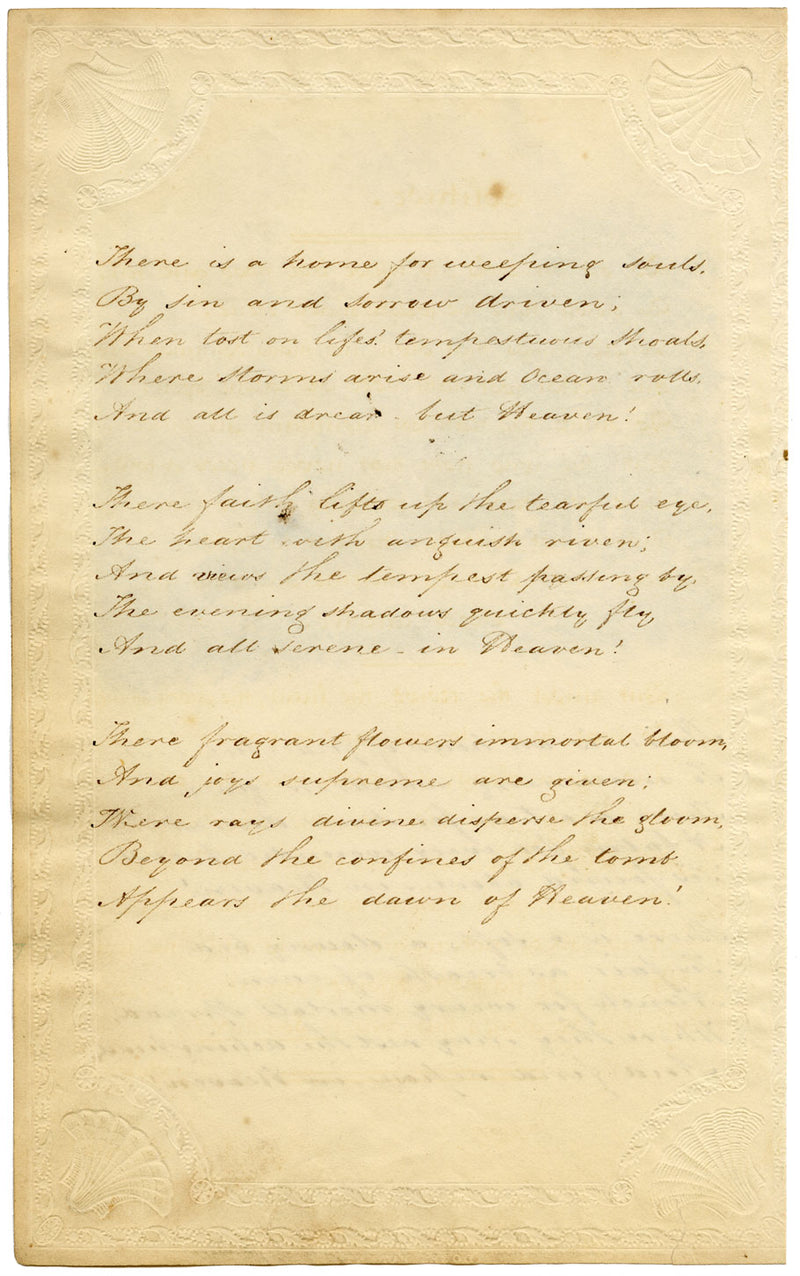 There is a home for weeping souls,
By sin and sorrow driven;
When tost on lifes' tempestuous shoals,
Where storms arise and Ocean rolls,
And all is drear - but Heaven!
There faith lifts up the tearful eye,
The heart with anguish riven;
And views the tempest passing by,
The evening shadows quickly fly,
And all serene - in Heaven!
There fragrant flowers immortal bloom,
And joys supreme are given;
There rays divine disperse the gloom,
Beyond the confines of the tomb
Appears the dawn of Heaven!